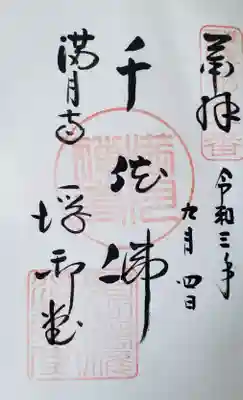 奉拝
令和三年
九月四日
千体佛
満月寺
浮御堂